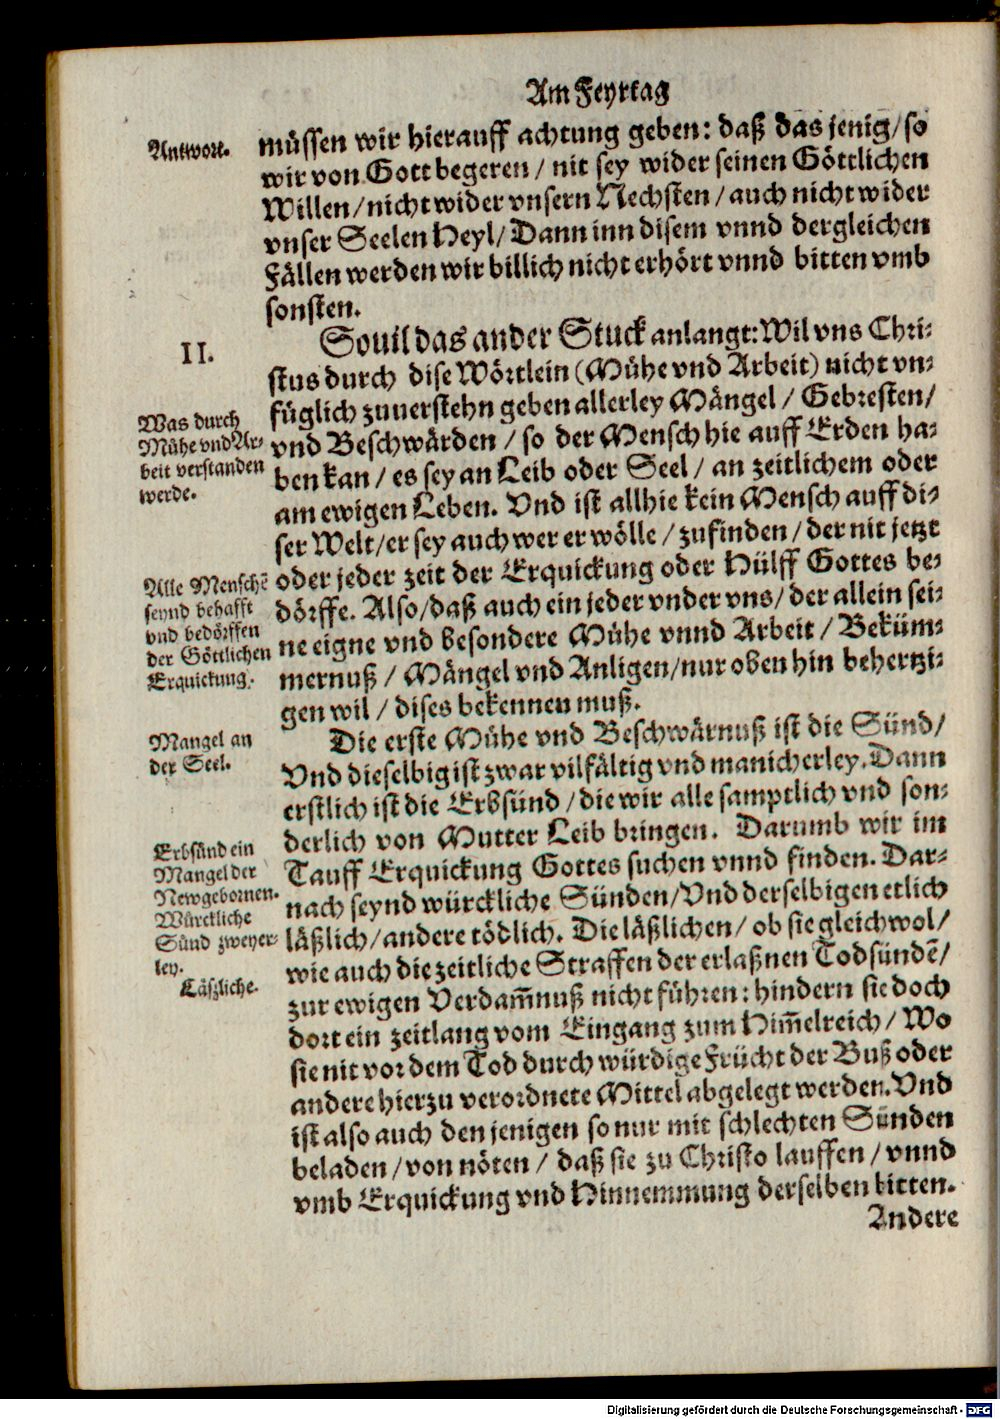 Am Feyrtag
Antwort.
müssen wir hierauff achtung geben: daß das jenig/ so
wir von Gott begeren / nit sey wider seinen Göttlichen
Willen / nicht wider vnsern Nechsten / auch nicht wider
vnser Seelen Heyl / Dann inn disem vnnd dergleichen
Fällen werden wir billich nicht erhört vnnd bitten vmb
sonsten.
II.
Souil das ander Stuck anlangt: Wil vns Chri-
stus durch dise Wörtlein (Mühe vnd Arbeit) nicht vn-
füglich zuuerstehn geben allerley Mängel / Gebresten /
vnd Beschwärden / so der Mensch hie auff Erden ha-
ben kan / es sey an Leib oder Seel / an zeitlichem oder
am ewigen Leben. Vnd ist allhie kein Mensch auff di-
ser Welt / er sey auch wer er wölle / zufinden / der nit jetzt
oder jeder zeit der Erquickung oder Hülff Gottes be-
dörffe. Also / daß auch ein jeder vnder vns / der allein sei-
ne eigne vnd besondere Mühe vnnd Arbeit / Beküm-
mernuß / Mängel vnd Anligen / nur oben hin behertzi-
gen wil / dises bekennen muß.
Was durch
Mühe vnd Ar-
beit verstanden
werde.
Alle Menschē
seynd behafft
vnd bedörffen
der Göttlichen
Erquickung.
Mangel an
der Seel.
Die erste Mühe vnd Beschwärnuß ist die Sünd /
Vnd dieselbig ist zwar vilfältig vnd manicherley. Dann
erstlich ist die Erbsünd / die wir alle samptlich vnd son-
derlich von Mutter Leib bringen. Darumb wir im
Tauff Erquickung Gottes suchen vnnd finden. Dar-
nach seynd würckliche Sünden / Vnd derselbigen etlich
läßlich / andere tödlich. Die läßlichen / ob sie gleichwol /
wie auch die zeitliche Straffen der erlaßnen Todsündē /
zur ewigen Verdam̄nuß nicht führen: hindern sie doch
dort ein zeitlang vom Eingang zum Him̄elreich / Wo
sie nit vor dem Tod durch würdige Frücht der Buß oder
andere hierzu verordnete Mittel abgelegt werden. Vnd
ist also auch den jenigen so nur mit schlechten Sünden
beladen / von nöten / daß sie zu Christo lauffen / vnnd
vmb Erquickung vnd Hinnemmung derselben bitten.
Erbsünd ein
Mangel der
Newgebornen.
Würckliche
Sünd zweyer-
ley.
Läßliche.
Andere
Digitalisierung gefördert durch die Deutsche Forschungsgemeinschaft - DFG